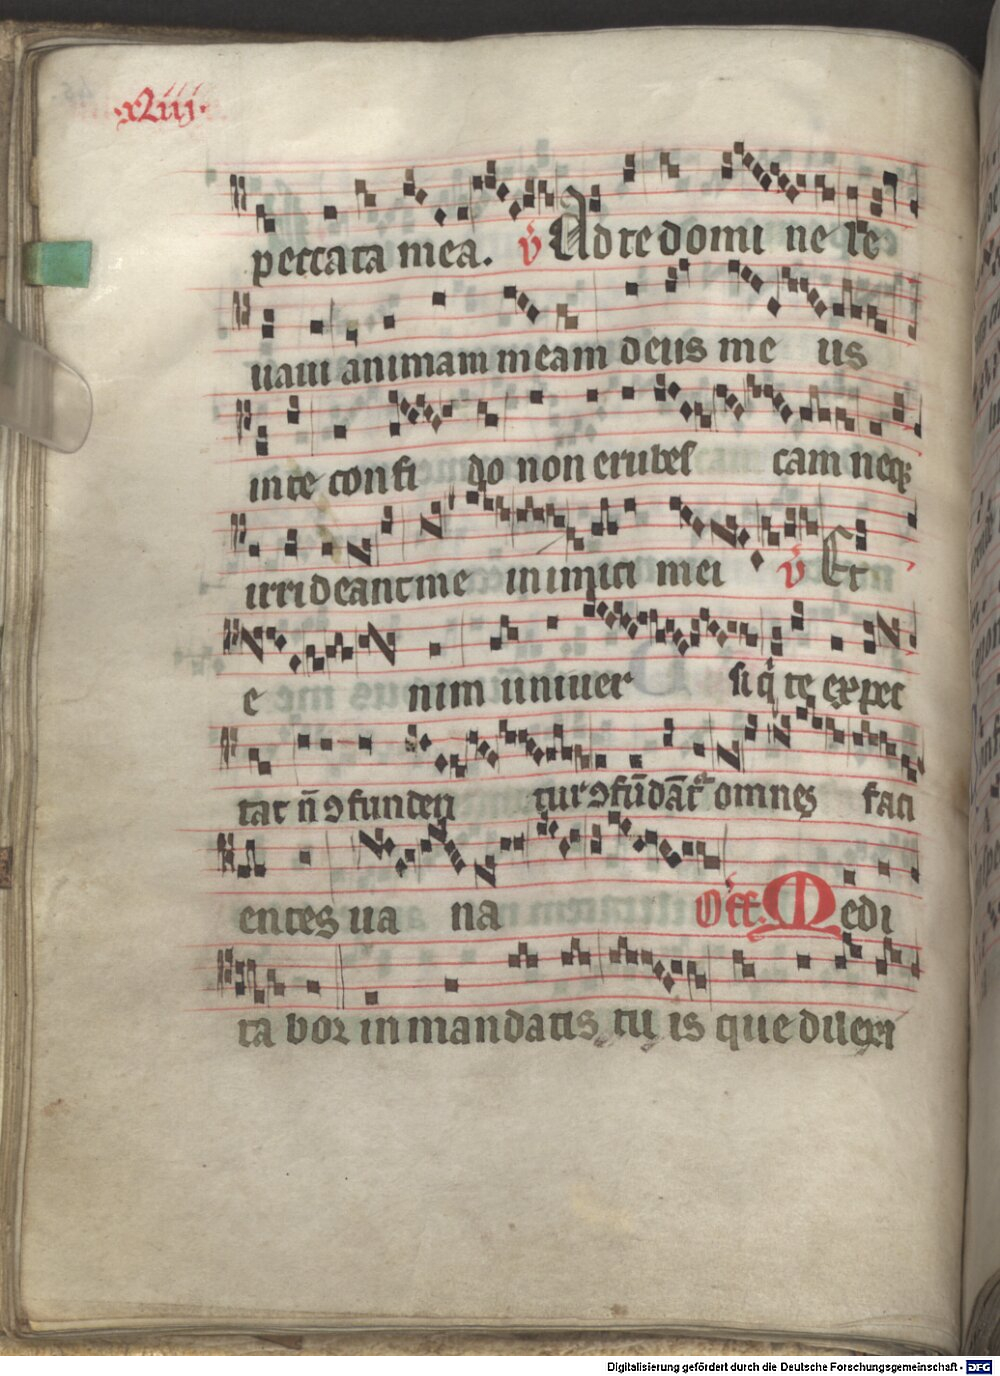 ·xliii·
peccata mea. v̊ Ad te domi ne le
uaui animam meam deus me us
in te confi do non erubes cam neqꝫ
irrideant me inimici mei v̊ Et
e nim univer si q̇ te expec
tat n̄ ꝯfunden tur ꝯfūdāt᷑ omnes faci
entes ua na Off. Medi
ta bor in mandatis tu is que dilexi
Digitalisierung gefördert durch die Deutsche Forschungsgemeinschaft - DFG